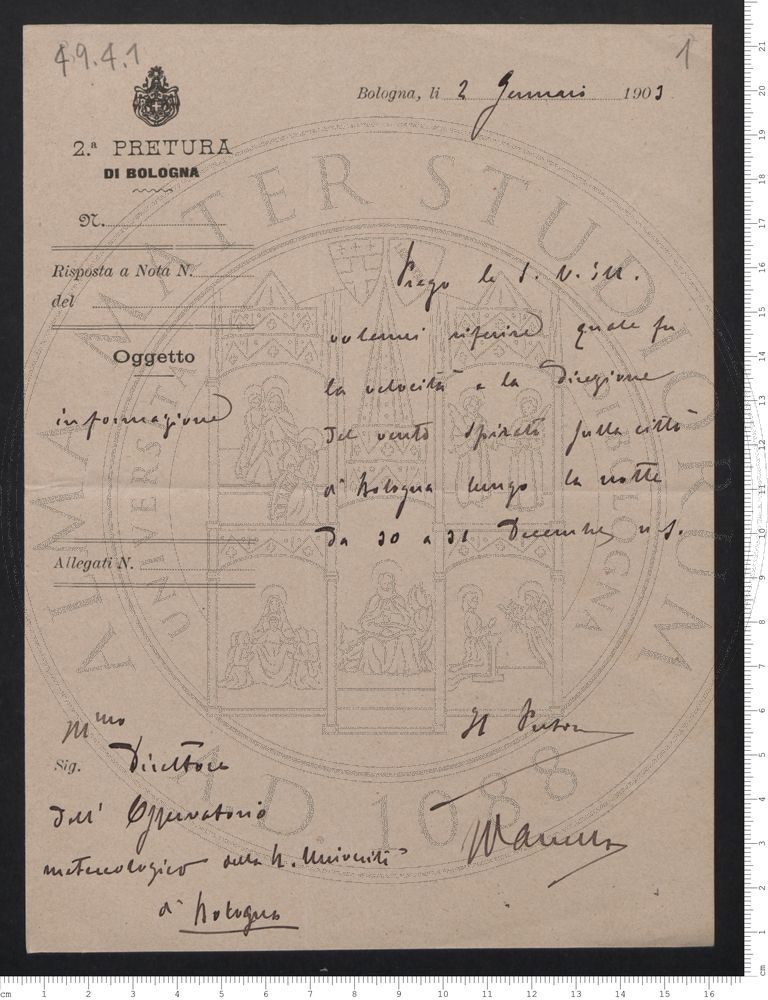 49.4.1
1
Bologna, li 2 Gennaio 1903
2.ª PRETURA
DI BOLOGNA
N.
Risposta a Nota N.
del
Oggetto
informazione
Allegati N.
Prego la S. V. Ill.
volermi riferire quale fu
la velocità e la direzione
del vento spirato sulla città
di Bologna lungo la notte
da 30 a 31 Decembre u. s.
Il Pretore
Ill mo
Sig. Direttore
dell' Osservatorio
meteorologico della R. Università
di Bologna
ALMA MATER STUDIORUM
UNIVERSITÀ DI BOLOGNA
A.D. 1088